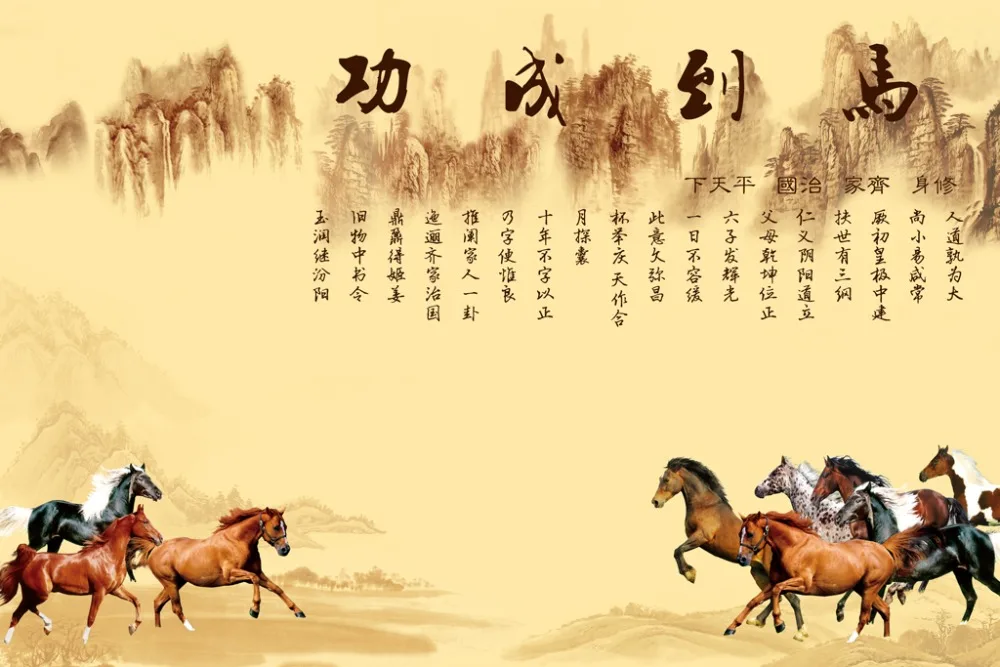 馬到成功
修身 齊家 治國 平天下
人道孰为大
尚小易咸常
厥初皇极中建
扶世有三纲
仁义阴阳道立
父母乾坤位正
六子发辉光
一日不容缓
此意久弥昌
杯举庆天作合
月探囊
十年不字以正
乃字便惟良
推阐家人一卦
迤逦齐家治国
鼎鼐得姬姜
旧物中书令
玉润继汾阳